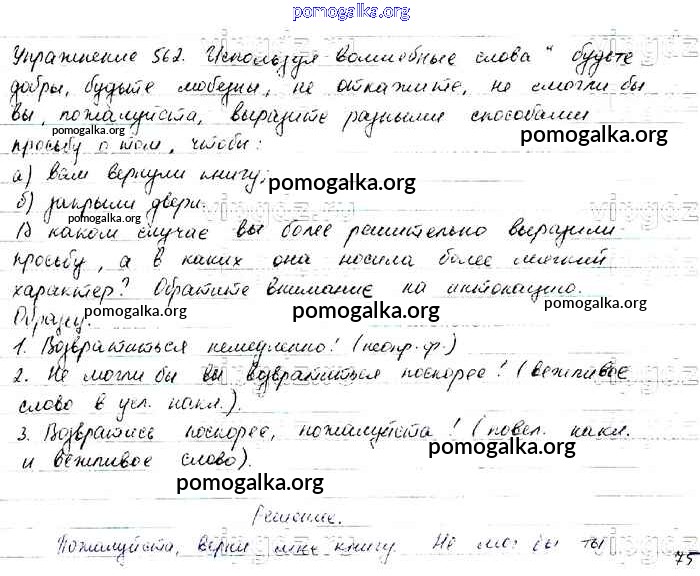 pomogalka.org
Упражнение 562. Используя волшебные слова " будьте
добры, будьте любезны, не откажите, не смогли бы
вы, пожалуйста, выразите разными способами
pomogalka.org
pomogalka.org
просьбу о том, чтобы:
а) вам вернули книгу;
pomogalka.org
б) закрыли двери.
pomogalka.org
В каком случае вы более решительно выразили
просьбу, а в каких она носила более мягкий
характер? Обратите внимание на интонацию.
pomogalka.org
pomogalka.org
Образец.
1. Возвратиться немедленно! (неопр. ф.)
2. Не могли бы вы возвратиться поскорее! (вежливое
слово в усл. накл.).
3. Возвратись поскорее, пожалуйста! (повел. накл.
pomogalka.org
и вежливое слово).
pomogalka.org
Решение.
Пожалуйста, верни мне книгу. Не мог бы ты
75